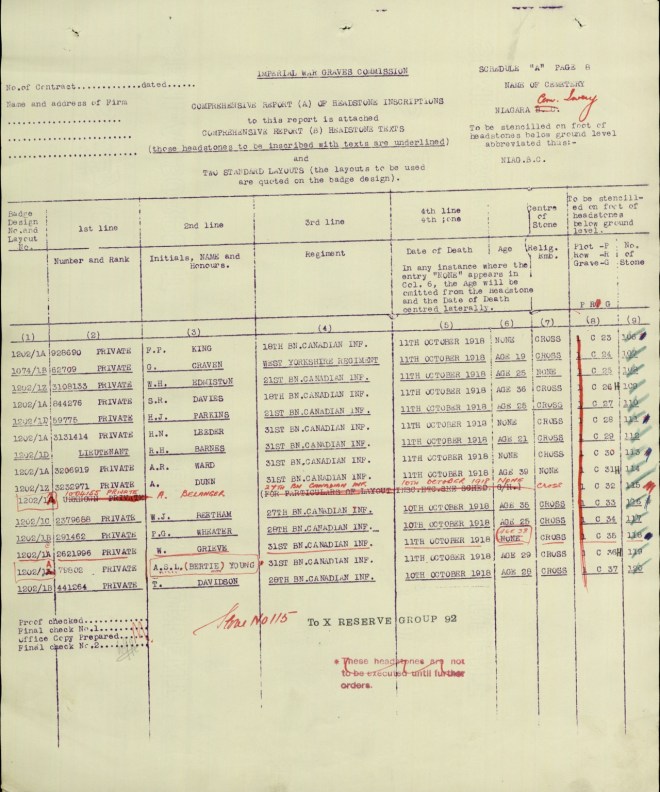 IMPERIAL WAR GRAVES COMMISSION
SCHEDULE "A" PAGE 8
No.of Contract.............dated.....
NAME OF CEMETERY
Name and address of Firm
COMPREHENSIVE REPORT (A) OF HEADSTONE INSCRIPTIONS
NIAGARA B.C. Cem.
to this report is attached
COMPREHENSIVE REPORT (B) HEADSTONE TEXTS
To be stencilled on foot of
headstones below ground level
abbreviated thus:-
(those headstones to be inscribed with texts are underlined)
and
NIAG.B.C.
TWO STANDARD LAYOUTS (the layouts to be used
are quoted on the badge design).
Badge Design No.and Layout No.
1st line
2nd line
3rd line
4th line
Centre of Stone
To be stencill-ed on foot of headstones below ground level.
Number and Rank
Initials, NAME and Honours.
Regiment
Date of Death
Age
Relig. Emb.
Plot -P Row -R Grave-G
No. of Stone
In any instance where the
entry "NONE" appears in
Col. 6, the Age will be
omitted from the headstone
and the Date of Death
centred laterally.
P R G
(1) (2) (3) (4) (5) (6) (7) (8) (9)
1202/1A 928690 PRIVATE F.P. KING 18TH BN.CANADIAN INF. 11TH OCTOBER 1918 NONE CROSS 1 C 23
1074/1B 62709 PRIVATE G. CRAVEN WEST YORKSHIRE REGIMENT 11TH OCTOBER 1918 AGE 19 CROSS 1 C 24
1202/1Z 3108133 PRIVATE W.H. EDMISTON 21ST BN.CANADIAN INF. 11TH OCTOBER 1918 NONE NONE 1 C 25
1202/1A 844276 PRIVATE S.R. DAVIES 18TH BN.CANADIAN INF. 11TH OCTOBER 1918 AGE 36 CROSS 1 C 26
1202/1D 59775 PRIVATE H.J. PARKINS 21ST BN.CANADIAN INF. 11TH OCTOBER 1918 AGE 28 CROSS 1 C 27 110
1202/1A 3131414 PRIVATE H.N. LEEDER 31ST BN.CANADIAN INF. 11TH OCTOBER 1918 NONE CROSS 1 C 28 111
1202/1D LIEUTENANT R.H. BARNES 31ST BN.CANADIAN INF. 11TH OCTOBER 1918 AGE 21 CROSS 1 C 29 112
1202/1A 3206919 PRIVATE A.R. WARD 31ST BN.CANADIAN INF. 11TH OCTOBER 1918 NONE CROSS 1 C 30 113
1202/1Z 3232971 PRIVATE A. DUNN 31ST BN.CANADIAN INF. 11TH OCTOBER 1918 AGE 39 NONE 1 C 31 114
1202/1A PRIVATE A. BELANGER 27TH BN CANADIAN INF. 10TH OCTOBER 1918 NONE CROSS 1 C 32 115
(FOR PARTICULARS OF LAYOUT
1202/1C 2379688 PRIVATE W.J. BERTHAM 27TH BN.CANADIAN INF. 10TH OCTOBER 1918 AGE 35 CROSS 1 C 33
1202/1B 291462 PRIVATE F.G. WHEATER 28TH BN.CANADIAN INF. 10TH OCTOBER 1918 AGE 25 CROSS 1 C 34 117
1202/1A 2621996 PRIVATE W. GRIEVE 31ST BN.CANADIAN INF. 11TH OCTOBER 1918 NONE CROSS 1 C 35 118
79802 PRIVATE A.S.L.(BERTIE) YOUNG 31ST BN.CANADIAN INF. 10TH OCTOBER 1918 AGE 29 CROSS 1 C 36 119
1202/1B 441264 PRIVATE T. DAVIDSON 28TH BN.CANADIAN INF. 10TH OCTOBER 1918 AGE 28 CROSS 1 C 37 120
Proof checked
Final check No.1
Office Copy Prepared
Final check No.2
Stone No 115
To X RESERVE GROUP 92
These headstones are not
to be executed until further
orders.